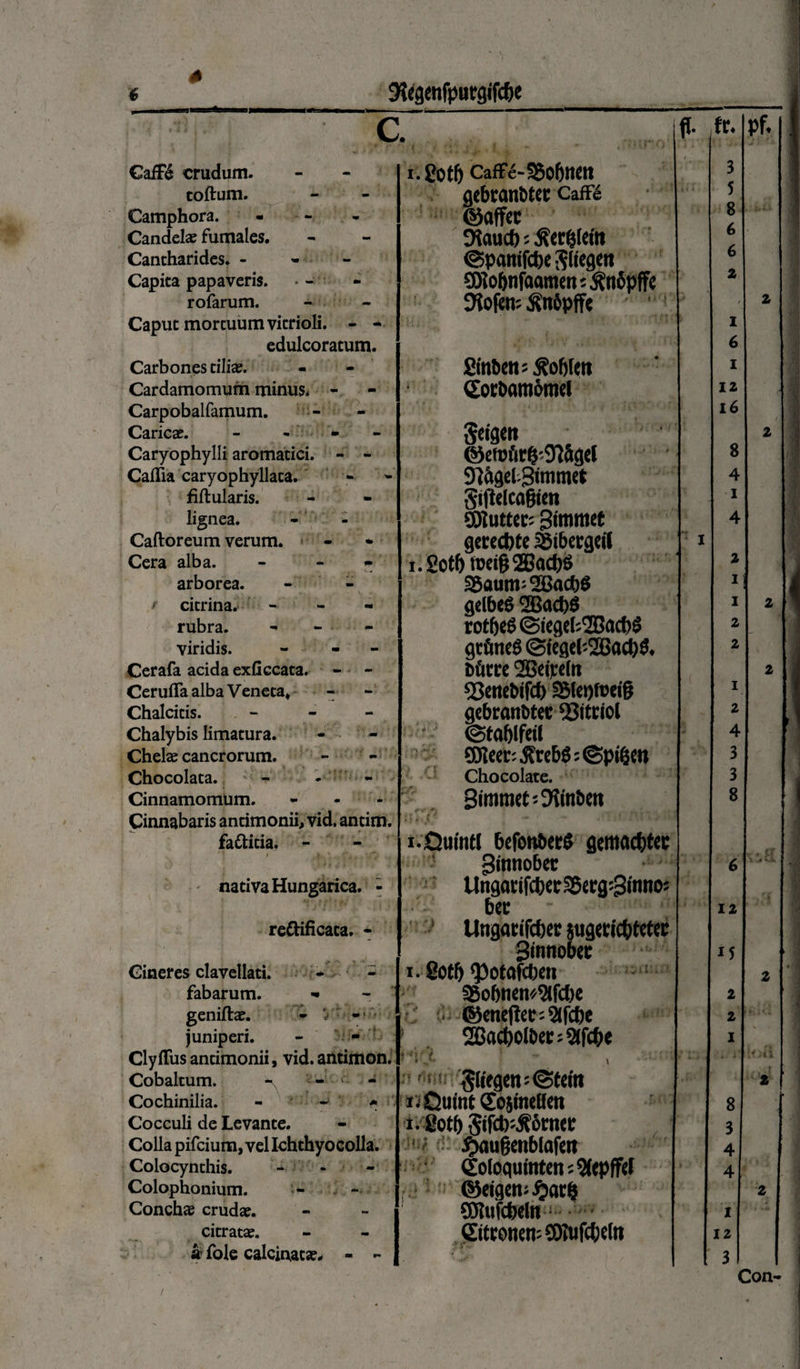 6 Regenspurgische
C. fl. kr. pf.
Caffé crudum. - - 1. Loth Caffé-Bohnen 3
tostum. - - gebrandter Caffé 5
Camphora. - - - Gaffer 8
Candelæ fumales. - - Rauch-Kertzlein 6
Cantharides. - - - Spanische Fliegen 6
Capita papaveris. - - Mohnsaamen-Knöpffe 2
rosarum. - - Rosen-Knöpffe 2
Caput mortuum vitrioli. - - 1
edulcoratum. 6
Carbones tiliæ. - - Linden-Kohlen 1
Cardamomum minus. - - Cordamömel 12
Carpobalsamum. - - 16
Caricæ. - - - - Feigen 2
Caryophylli aromatici. - - Gewürtz-Nägel 8
Cassia caryophyllata. - - Nägel-Zimmet 4
fistularis. - - Fistelcaßien 1
lignea. - - Mutter-Zimmet 4
Castoreum verum. - - gerechte Bibergeil 1
Cera alba. - - - 1. Loth weiß Wachs 2
arborea. - - Baum-Wachs 1
citrina. - - - gelbes Wachs 1 2
rubra. - - - rothes Siegel-Wachs 2
viridis. - - - grünes Siegel-Wachs. 2
Cerasa acida exsiccata. - - dürre Weixeln 2
Cerussa alba Veneta, - - Venedisch Bleyweiß 1
Chalcitis. - - - gebrandter Vitriol 2
Chalybis limatura. - - Stahlfeil 4
Chelæ cancrorum. - - Meer-Krebs-Spitzen 3
Chocolata. - - - Chocolate. 3
Cinnamomum. - - - Zimmet-Rinden 8
Cinnabaris antimonii, vid. antim.
factitia. - - 1. Quintl besonders gemachter
Zinnober 6
nativa Hungarica. - Ungarischer Berg-Zinno-
ber 12
rectificata. - Ungarischer zugerichteter
Zinnober 15
Cineres clavellati. - - 1. Loth Potaschen 2
fabarum. - - Bohnen-Asche 2
genistæ. - - Genester-Asche 2
juniperi. - - Wacholder-Asche 1
Clyssus antimonii, vid. antimon.
Cobaltum. - - - Fliegen-Stein 2
Cochinilia. - - - 1. Quint Cozinellen 8
Cocculi de Levante. - 1. Loth Fisch-Körner 3
Colla piscium, vel Ichthyocolla. Haußenblasen 4
Colocynthis. - - - Coloquinten-Aepffel 4
Colophonium. - - Geigen-Hartz 2
Conchæ crudæ. - - Muscheln 1
citratæ. - - Citronen-Muscheln 12
à sole calcinatæ. - - 3
Con-